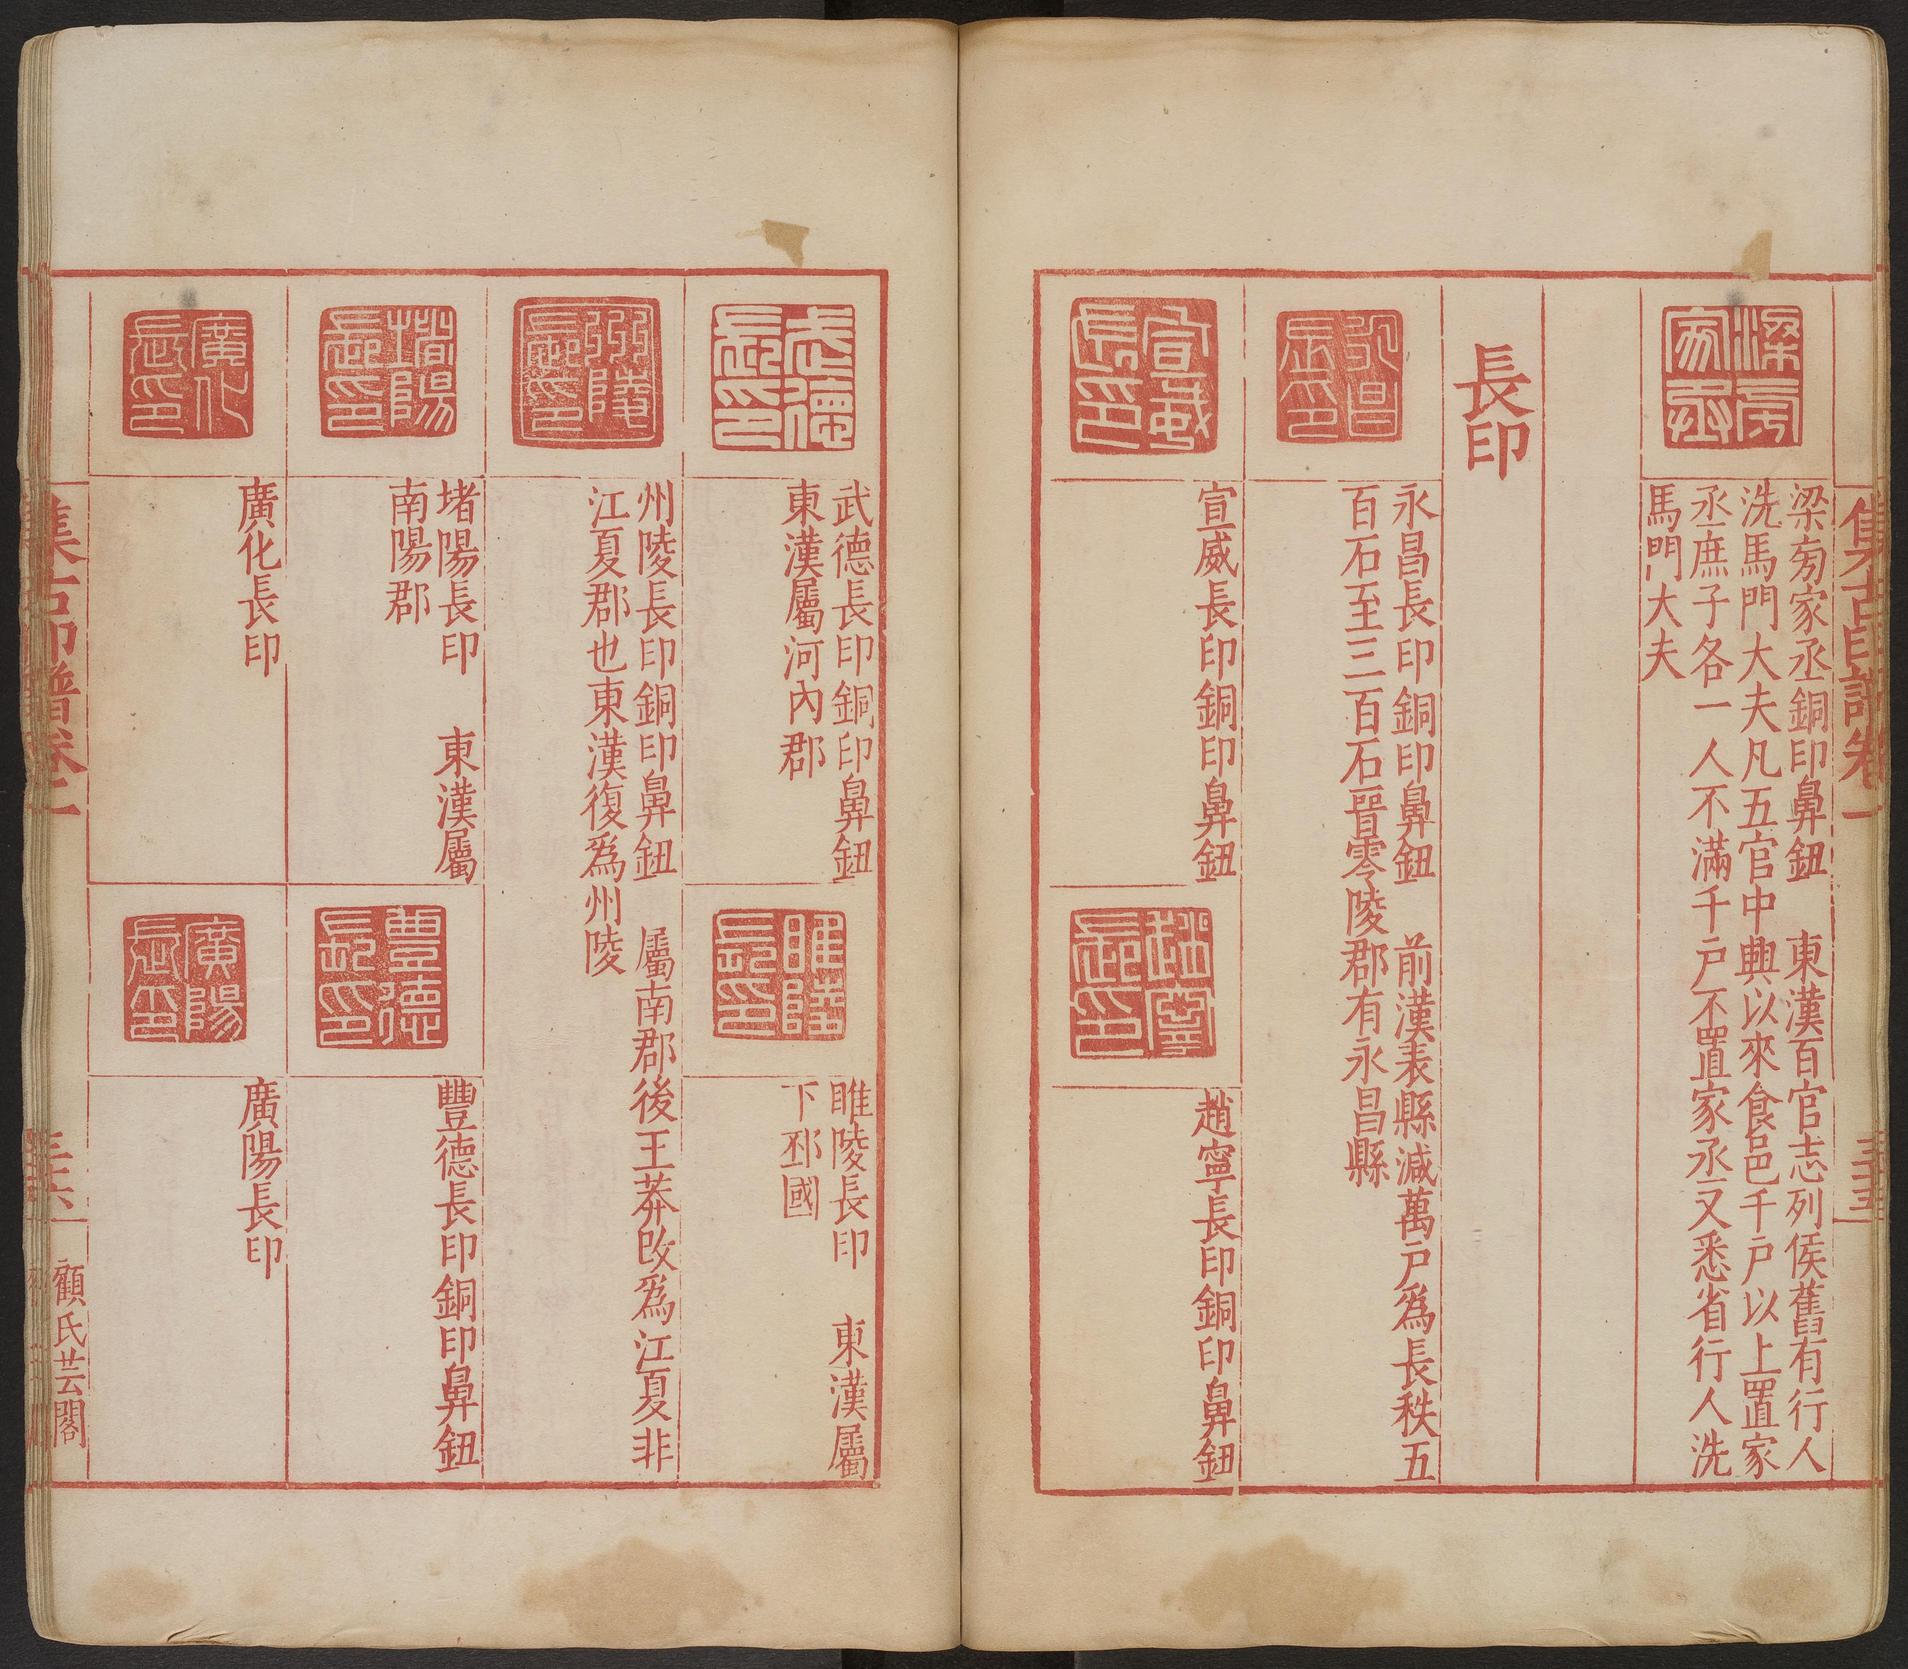 集古印譜卷一
三十五
梁㫄家丞
梁㫄家丞銅印鼻鈕　東漢百官志列侯舊有行人
洗馬門大夫凡五官中興以來食邑千戶以上置家
丞庶子各一人不滿千戶不置家丞又悉省行人洗
馬門大夫
長印
永昌長印
永昌長印銅印鼻鈕　前漢表縣減萬戶爲長秩五
百石至三百石晉零陵郡有永昌縣
宣威長印
宣威長印銅印鼻鈕
趙寧長印
趙寧長印銅印鼻鈕
武德長印
武德長印銅印鼻鈕
東漢屬河內郡
睢陵長印
睢陵長印　東漢屬
下邳國
州陵長印銅印鼻鈕　屬南郡後王莽改爲江夏非
江夏郡也東漢復爲州陵
堵陽長印
堵陽長印　東漢屬
南陽郡
豐德長印
豐德長印銅印鼻鈕
廣化長印
廣化長印
廣陽長印
廣陽長印
集古印譜卷一
三十六
顧氏芸閣